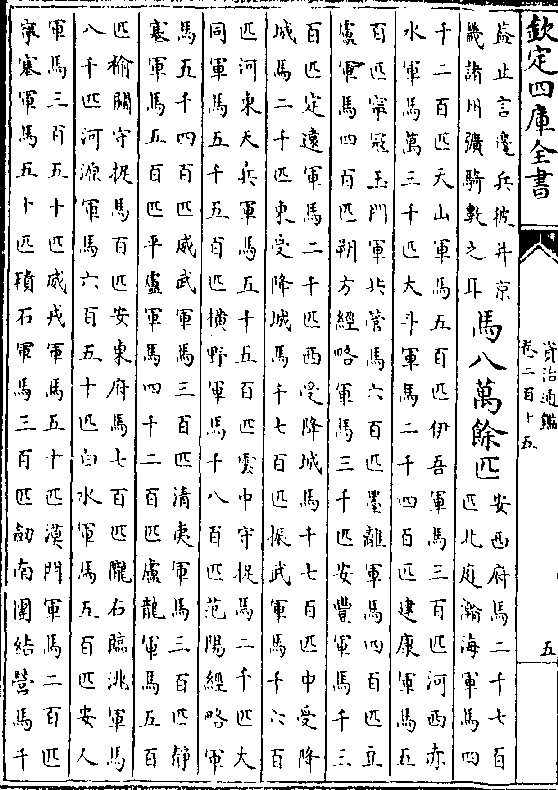 欽定四庫全書
資治通鑑
卷二百十五
五
益止言邊兵彼并京
畿諸州彍騎數之耳
馬八萬餘匹
安西府馬二千七百
匹北庭瀚海軍馬四
千二百匹天山軍馬五百匹伊吾軍馬三百匹河西赤
水軍馬萬三千匹大斗軍馬二千四百匹建康軍馬五
百匹寧寇玉門軍共管馬六百匹墨離軍馬四百匹豆
盧軍馬四百匹朔方經略軍馬三千匹安豐軍馬千三
百匹定遠軍馬二千匹西受降城馬千七百匹中受降
城馬二千匹東受降城馬千七百匹振武軍馬千六百
匹河東天兵軍馬五十五百匹雲中守捉馬二千匹大
同軍馬五千五百匹橫野軍馬千八百匹范陽經略軍
馬五千四百匹威武軍馬三百匹清夷軍馬三百匹靜
塞軍馬五百匹平盧軍馬四千二百匹盧龍軍馬五百
匹榆關守捉馬百匹安東府馬七百匹隴右臨洮軍馬
八千匹河源軍馬六百五十匹白水軍馬五百匹安人
軍馬三百五十匹威戎軍馬五十匹漠門軍馬二百匹
寧塞軍馬五十匹積石軍馬三百匹劒南團結營馬千